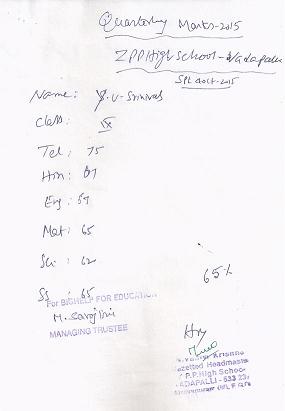 Quarterly Marks-2015
ZPP High School - Wadapalli
SPL Oct-2015
Name: Y.V-Srinivas
Class: IX
Tel: 75
Hin: 61
Eng: 59
Mat: 65
Sci: 62
SS: 65
65%
For BIGHELP FOR EDUCATION
M. Sarojini
MANAGING TRUSTEE
Gazetted Headmaste
Z.P.P.High School
WADAPALLI - 533 23